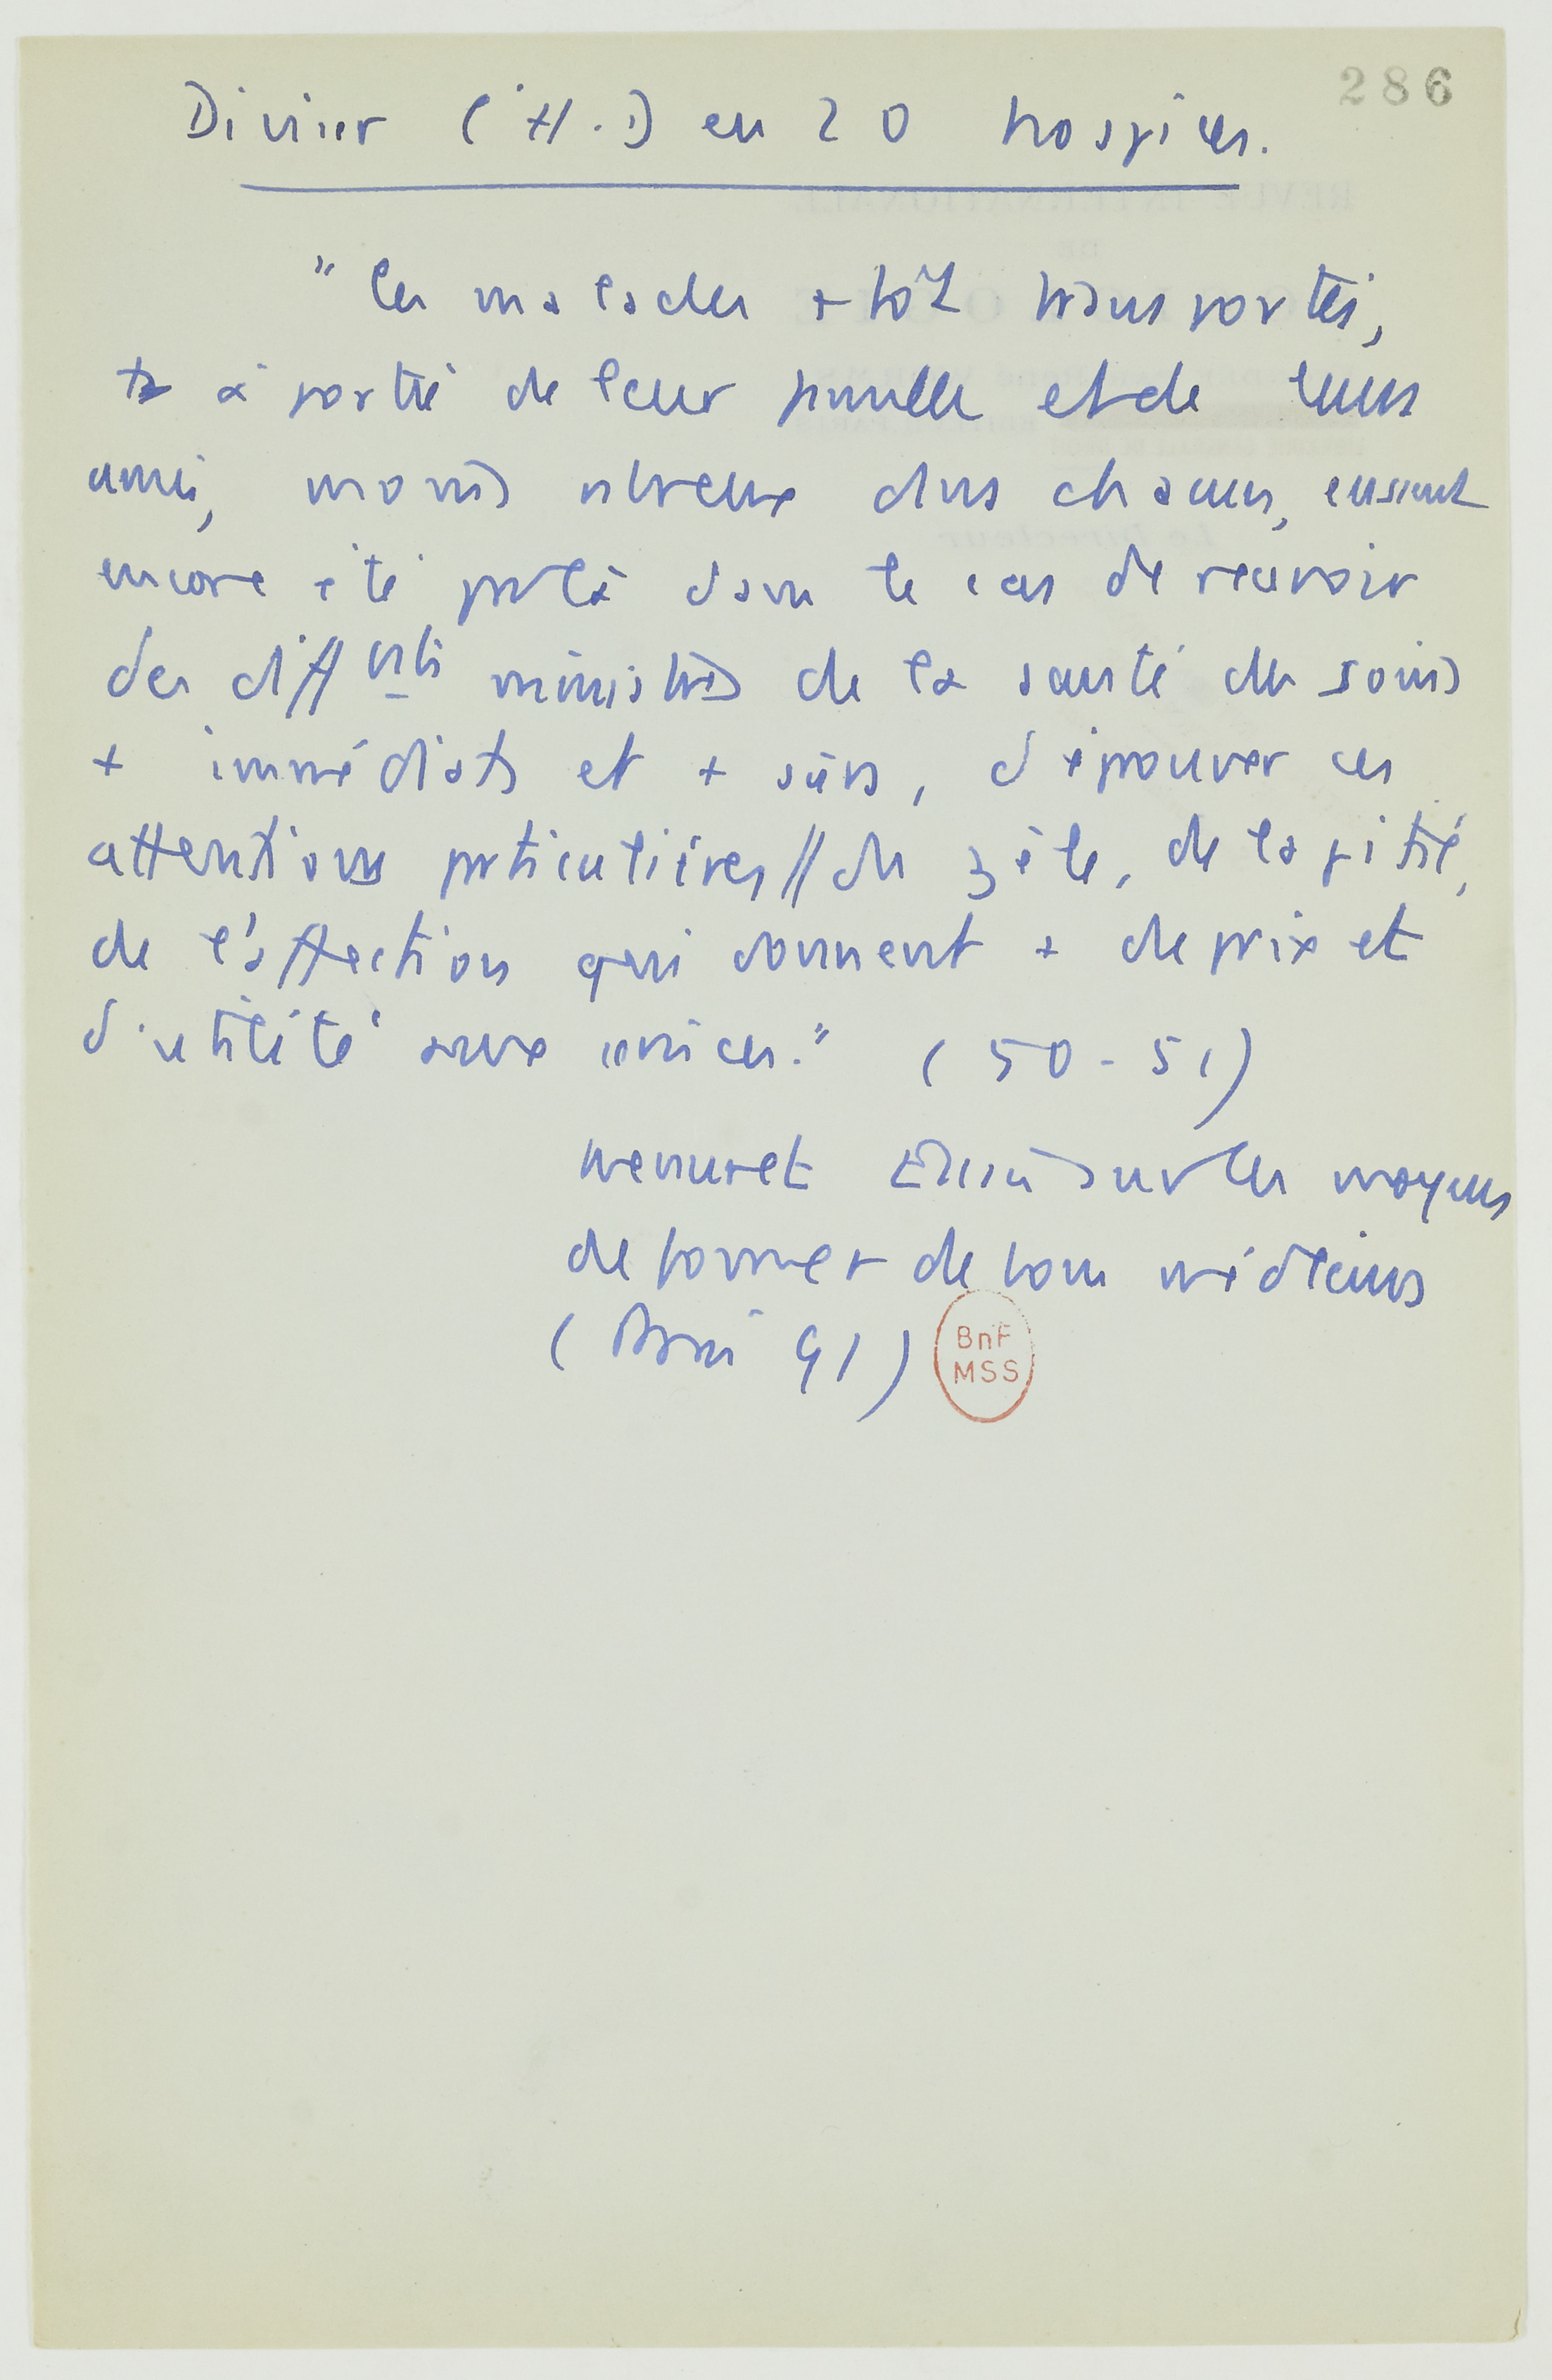 286
Diviser (H.D) en 20 hospices.
"les malades + tôt transportés,
à portée de leur famille et de leurs
amis, moins nbreux dans chacun, eussent
encore été par là dans le cas de recevoir
des diffents ministres de la santé des soins
+ immédiats et + sûrs, d'éprouver ces
attentions particulières // du zèle, de la pitié,
de l'affection qui donnent + de prix et
d'utilité aux services." (50-51)
Menuret Essai sur les moyens
de former de bons médecins
(Paris 91)
BnF
MSS